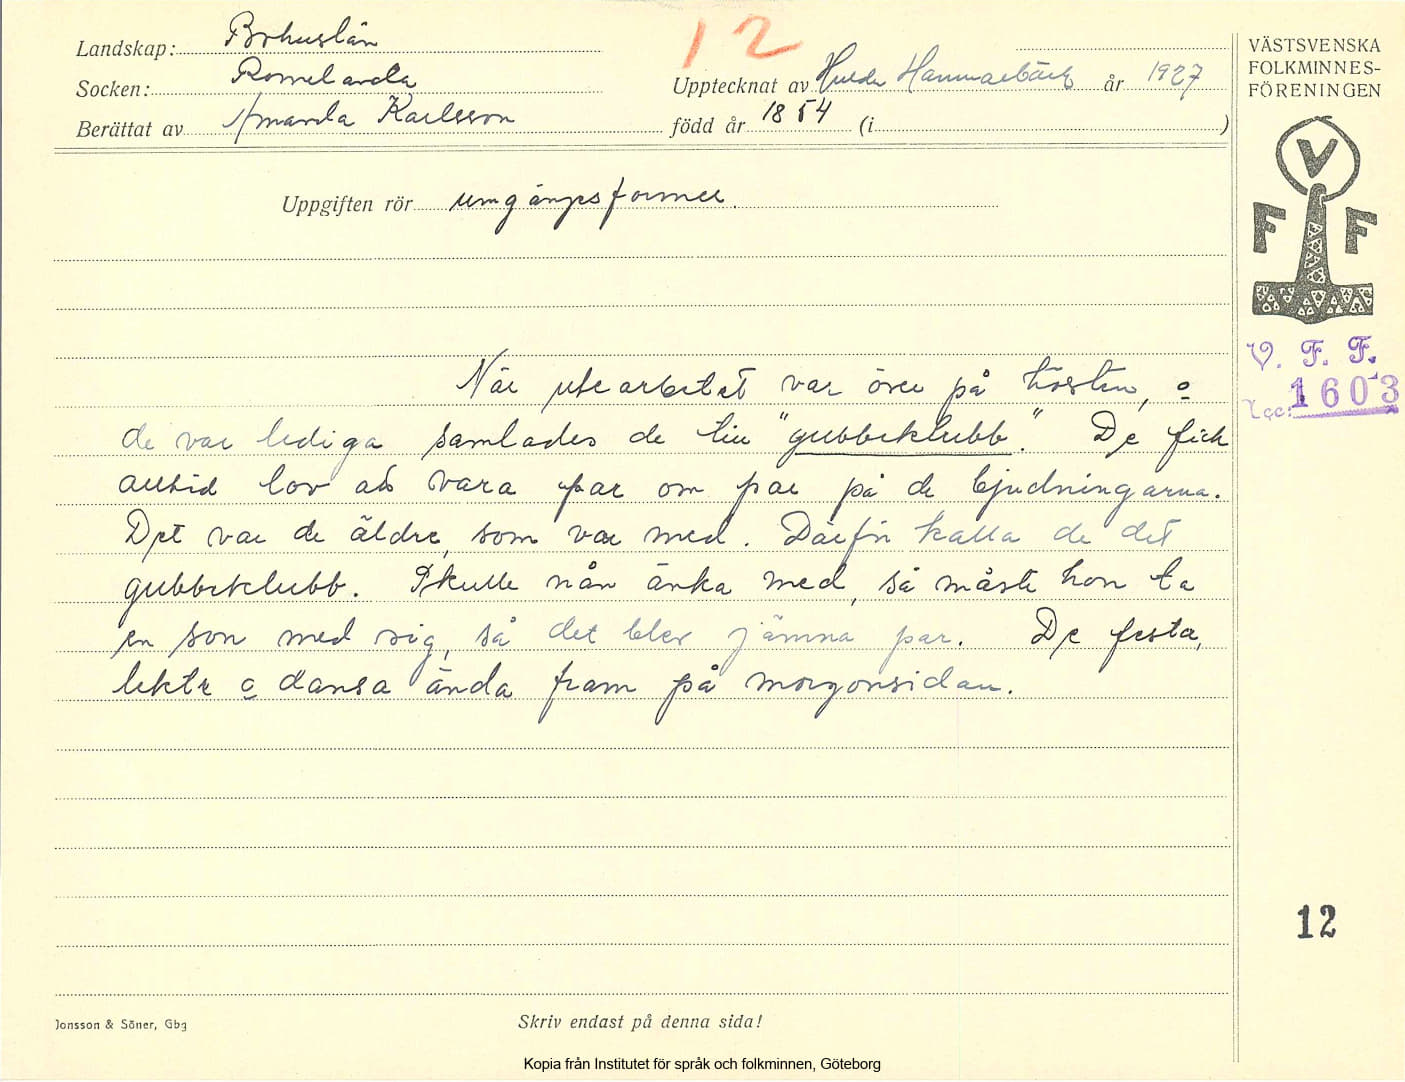 12
Landskap: Bohuslän
Socken: Romelanda
Berättat av Amanda Karlsson
Upptecknat av Hulda Hammarbäck år 1927
född år 1854 (i )
Uppgiften rör umgängsformer.
När utearbetet var över på hösten, o
de var lediga samlades de till "gubbeklubb." De fick
alltid lov att vara par om par på de bjudningarna.
Det var de äldre, som var med. Därför kalla de det
gubbeklubb. Skulle nån änka med, så måste hon ta
en son med sig, så det blev jämna par. De festa,
lekte o dansa ända fram på morgonsidan.
Jonsson & Söner, Gbg
Skriv endast på denna sida!
Kopia från Institutet för språk och folkminnen, Göteborg
VÄSTSVENSKA
FOLKMINNES-
FÖRENINGEN
V
F F
V. F. F.
acc: 1603
12